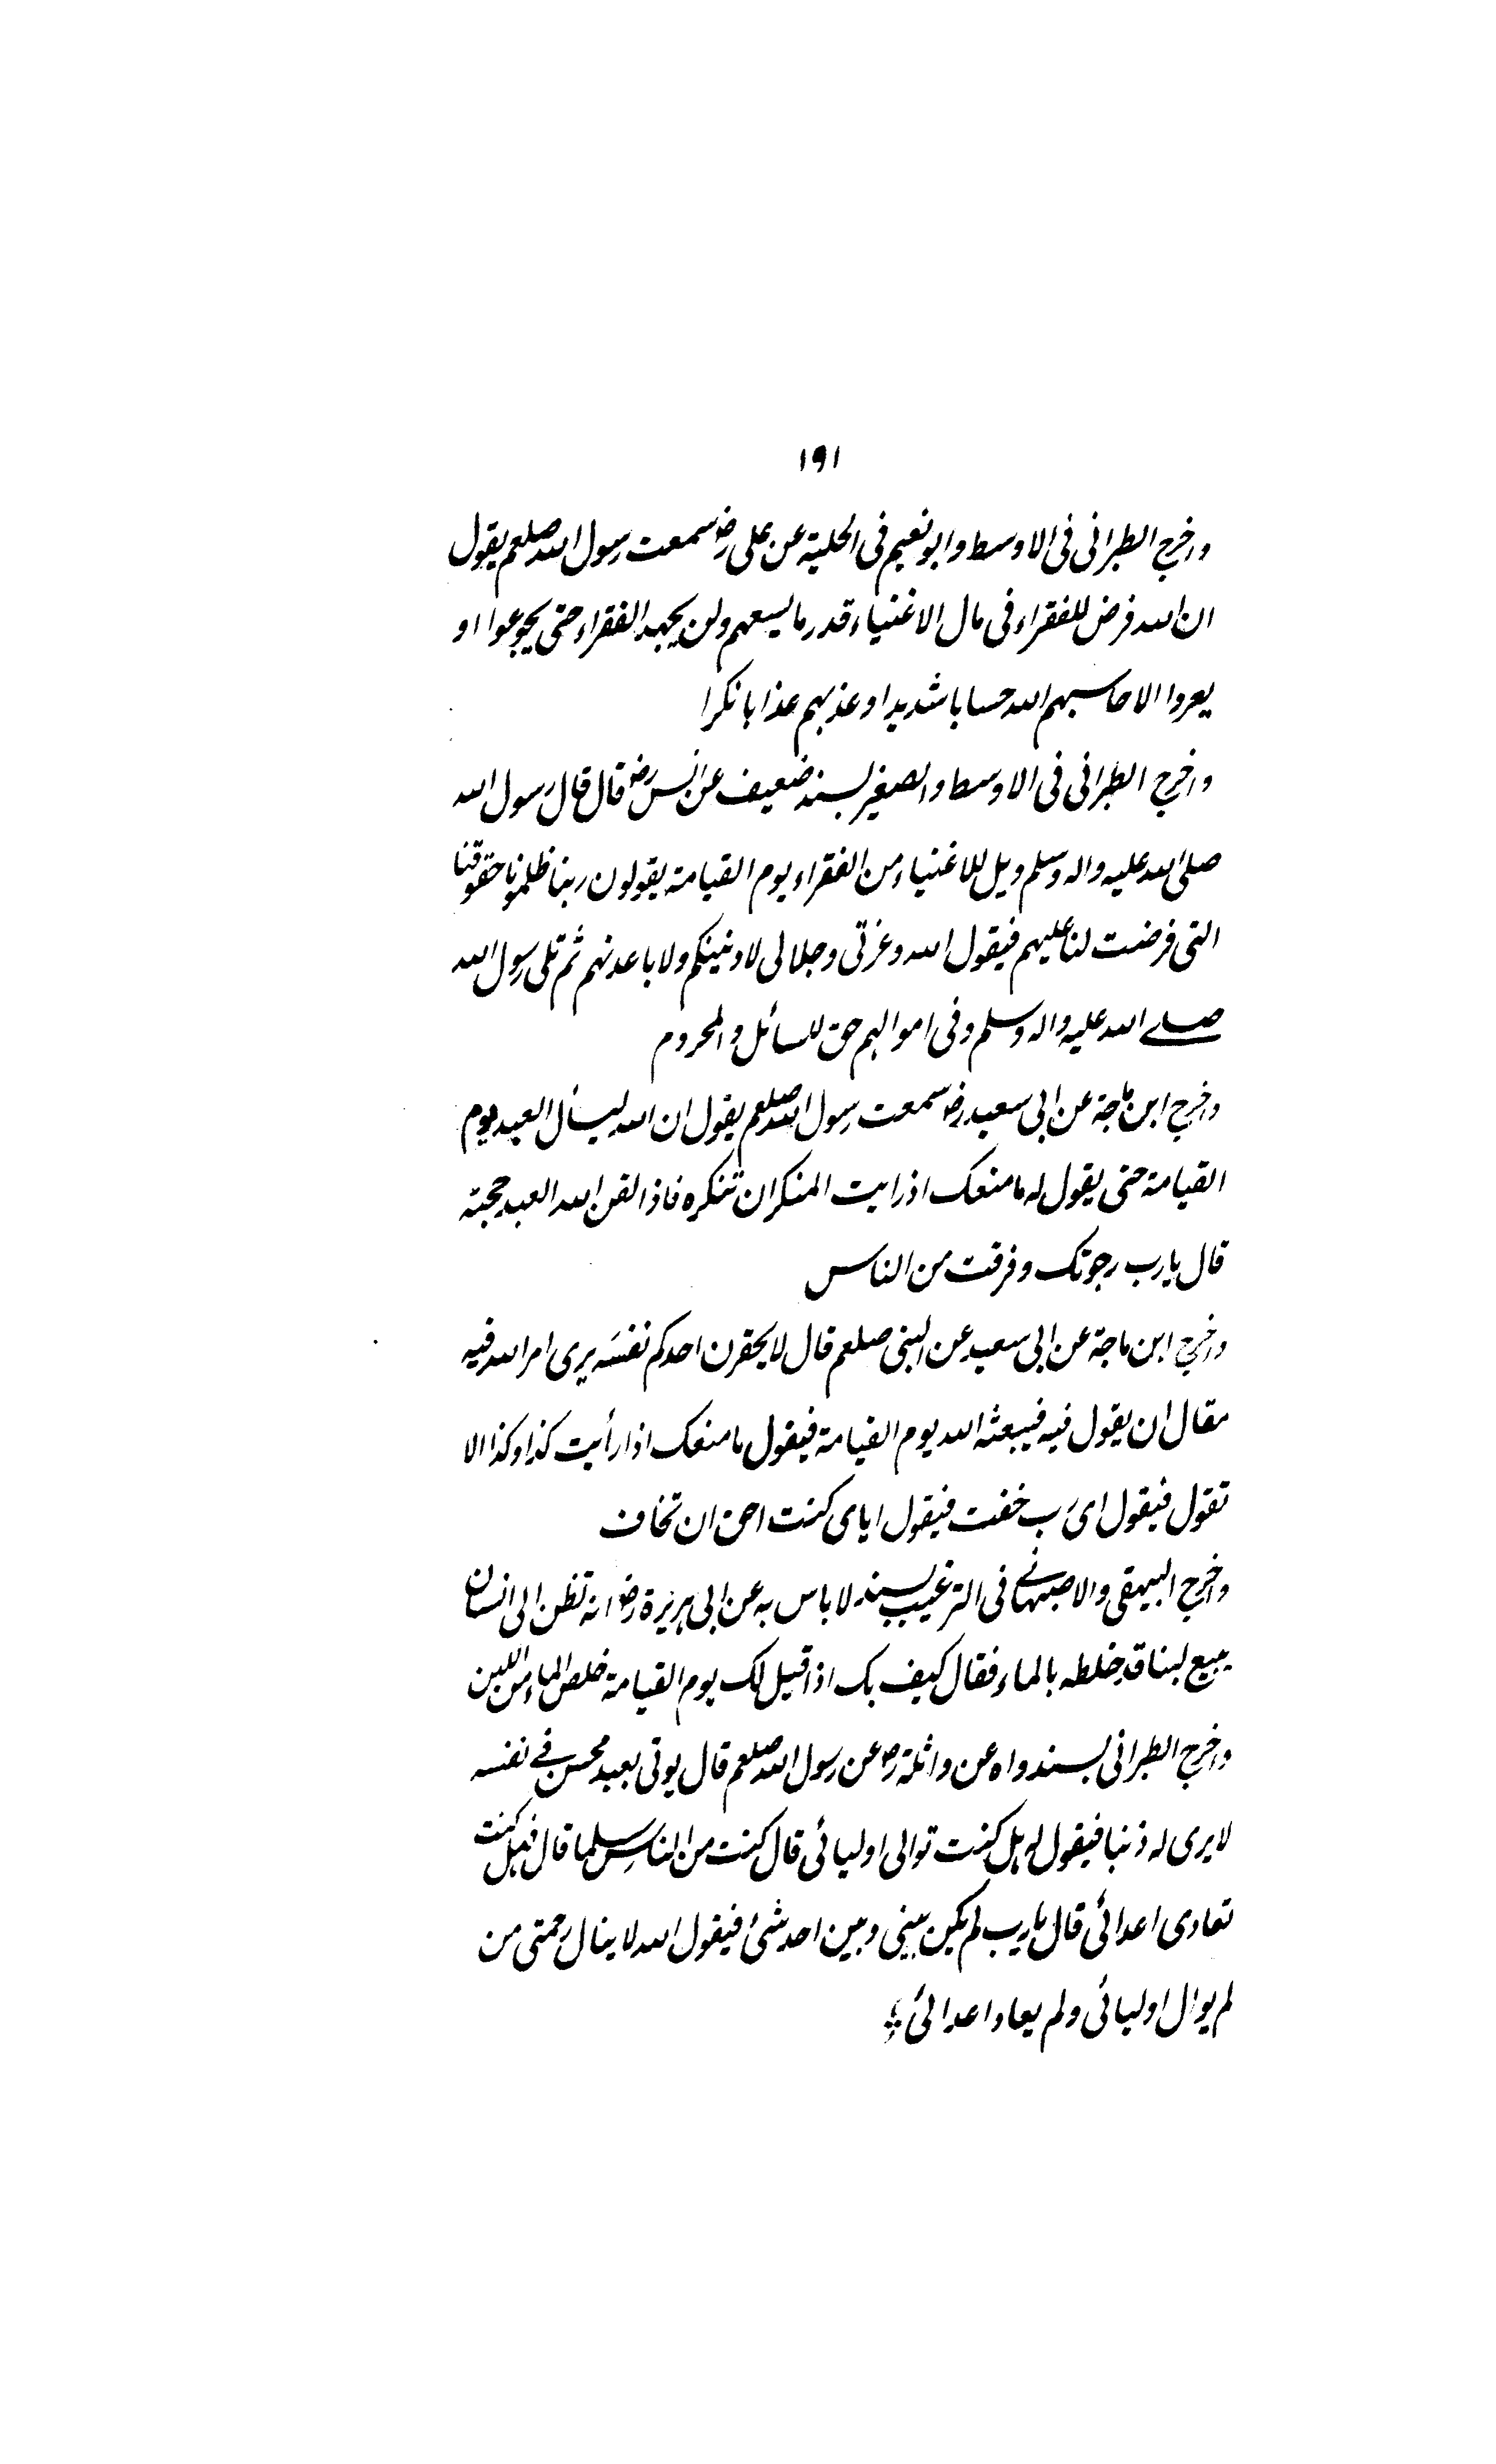 ۱۹۱
واخرج الطبرانی فی الاوسط وابو نعیم فی الحلیة عن علی رضہ سمعت رسول الله صلعم یقول
ان الله فرض للفقراء فی مال الاغنیاء قدر ما لیسعهم ولن یجهد الفقراء حتی یجوعوا او
یعروا الا حاسبهم الله حسابا شدیدا وعذبهم عذابا نکرا
واخرج الطبرانی فی الاوسط والصغیر بسند ضعیف عن انس رضہ قال قال رسول الله
صلی الله علیه واله وسلم ویل للاغنیاء من الفقراء یوم القیامة یقولون ربنا ظلمونا حقوقنا
التی فرضت لنا علیهم فیقول الله وعزتی وجلالی لادنینکم ولاباعدنهم ثم تلی رسول الله
صلے الله علیه واله وسلم وفی اموالهم حق للسائل والمحروم
واخرج ابن ماجة عن ابی سعید رضہ سمعت رسول الله صلعم یقول ان الله لیسأل العبد یوم
القیامة حتی یقول له ما منعک اذ رایت المنکر ان تنکره فاذا لقن الله العبد حجته
قال یا رب رجوتک وفرقت من الناس
واخرج ابن ماجة عن ابی سعید عن النبی صلعم قال لا یحقرن احدکم نفسَه یری امر الله فیه
مقال ان یقول فیه فیبعثه الله یوم القیامة فیقول ما منعک اذا رأیت کذا وکذا الا
تقول فیقول ای رَب خفت فیقول ایای کنت احق ان تخاف
واخرج البیهقی والاصبهانے فی الترغیب بسند لا باس به عن ابی هریرة رضہ انه تظن الی انسان
یبیع لبنا قد خلطه بالماء فقال کیف بک اذا قیل لک یوم القیامة خلص الماء من اللبن
واخرج الطبرانی بسند واه عن واثلة رضہ عن رسول الله صلعم قال یوتی بعبد محسن فے نفسه
لا یری له ذنبا فیقول له هل کنت توالی اولیائی قال کنت من الناس سلما قال فهل کنت
تعادی اعدائی قال یا رب لم یکن بینی وبین احد شیٔ فیقول الله لا ینال رحمتی من
لم یوال اولیائی ولم یعاد اعدائی